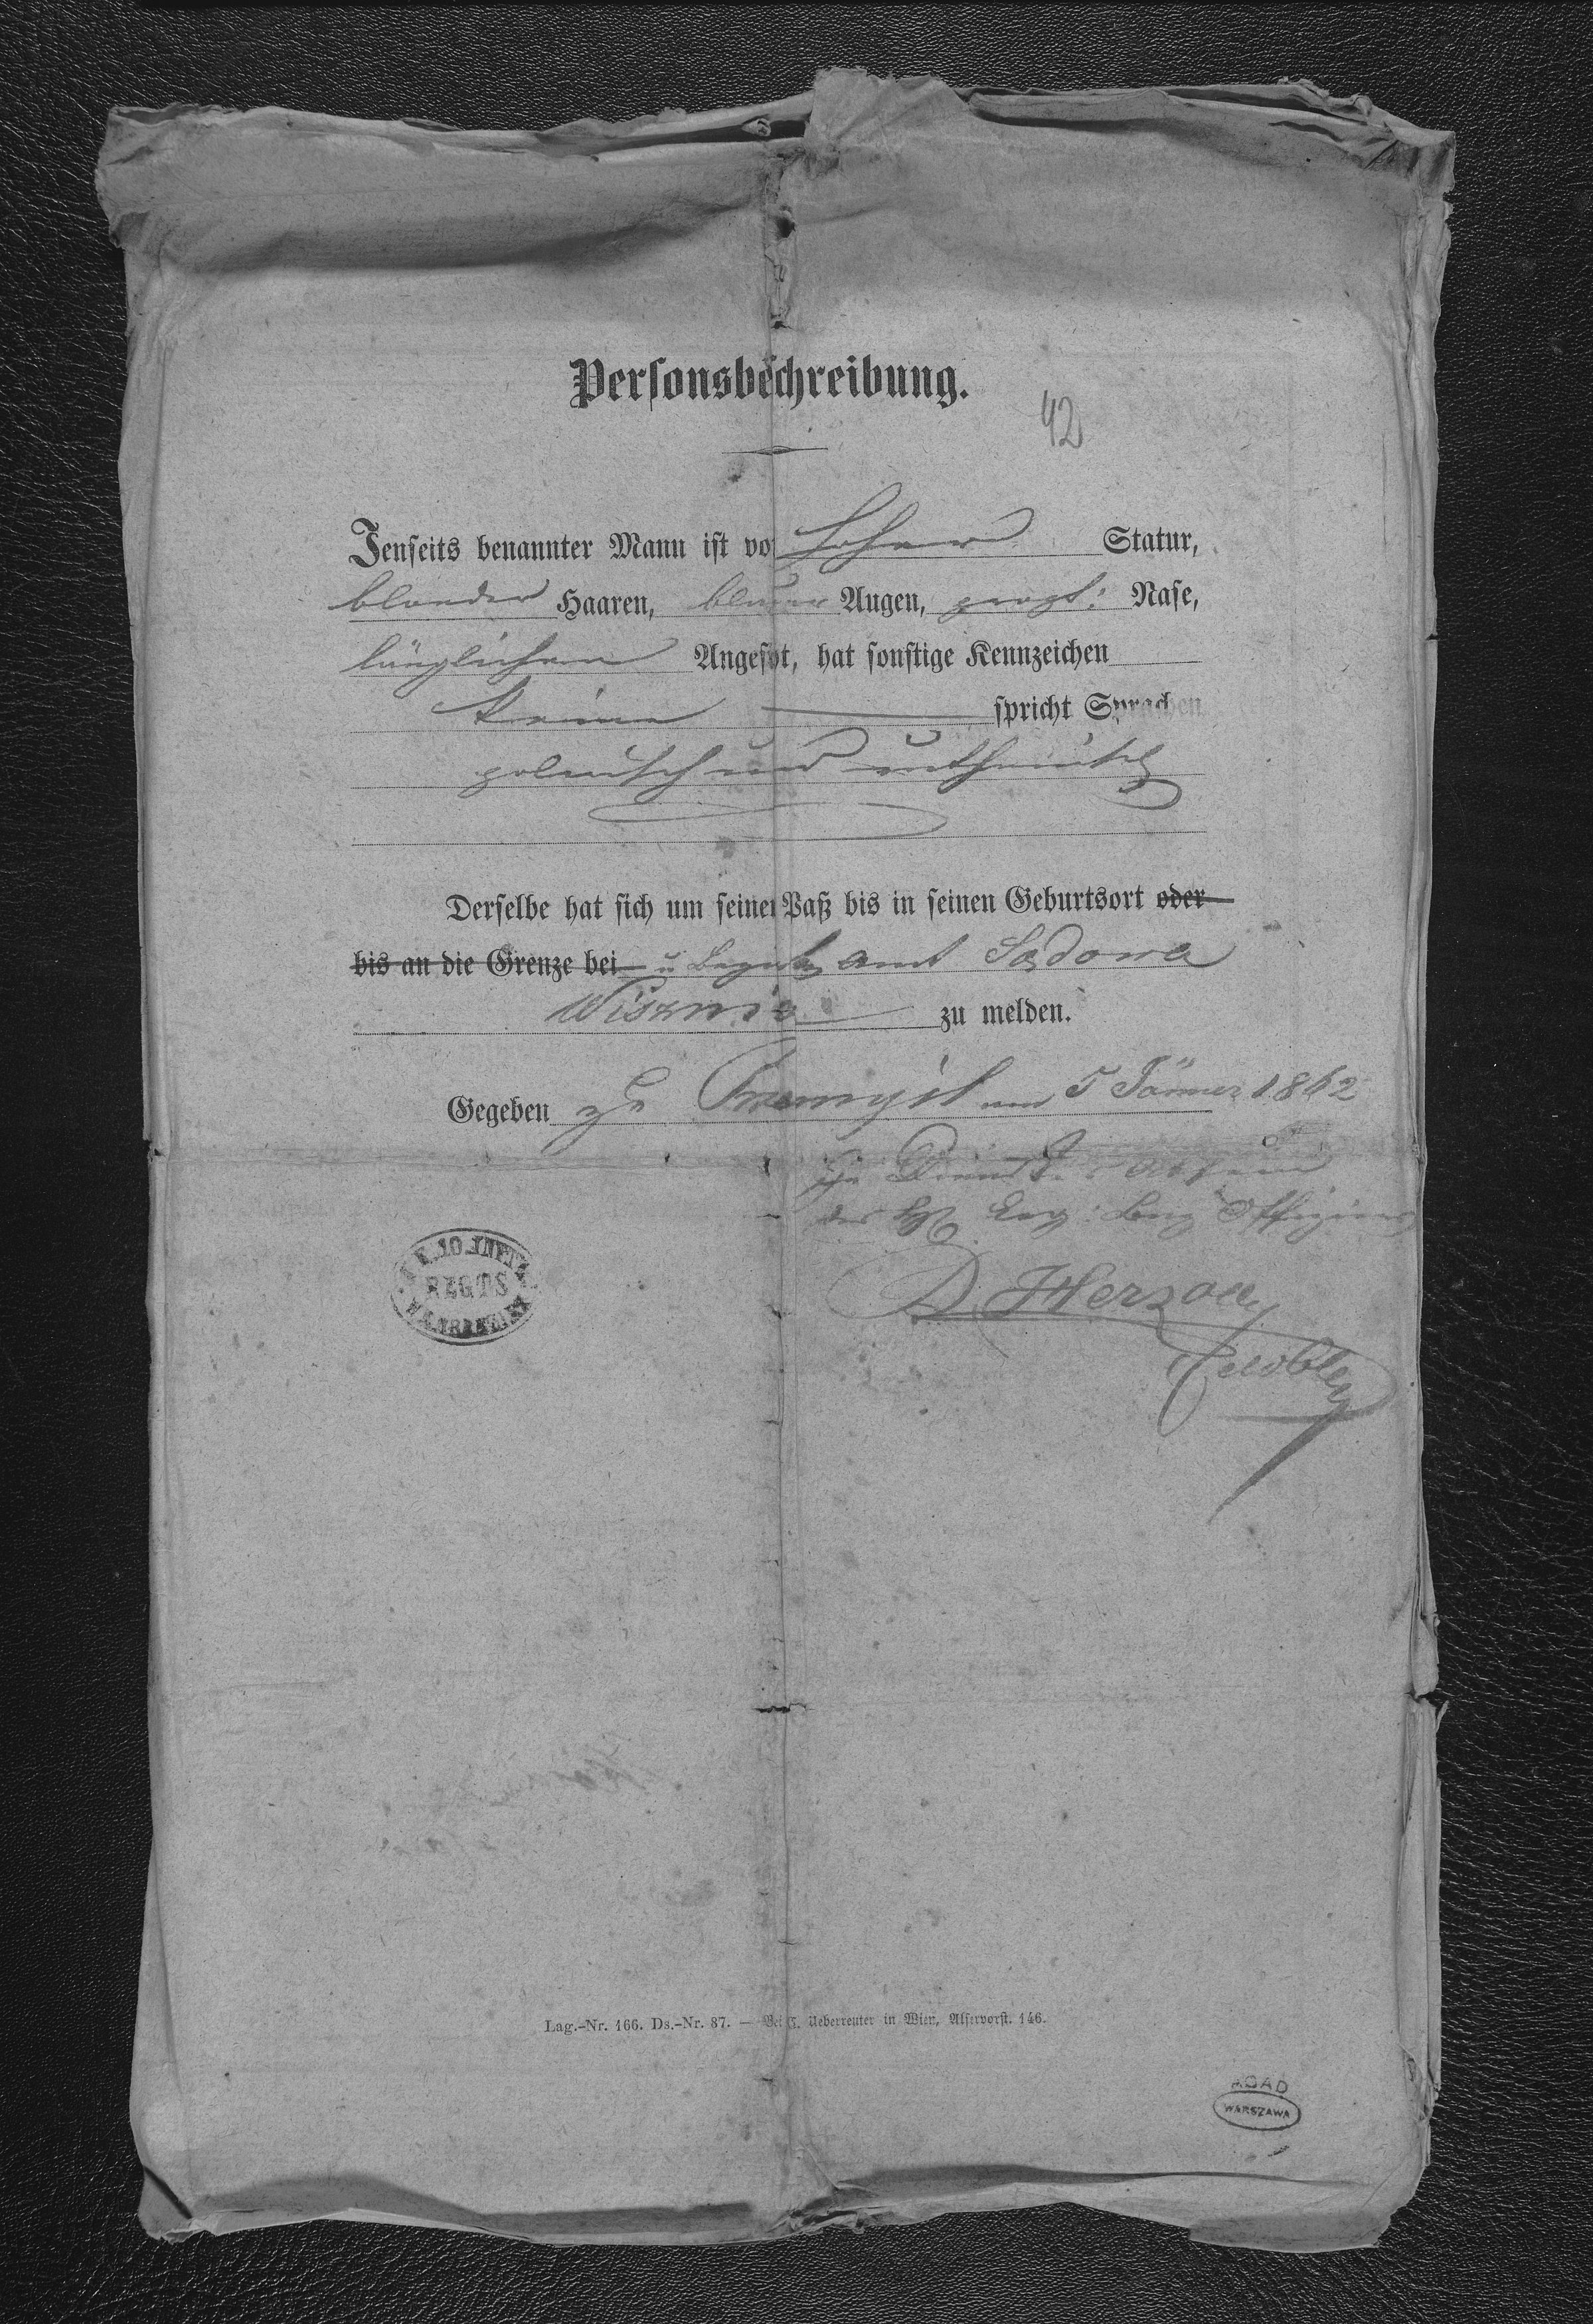 Personsbeschreibung.
42
Jenseits benannter Mann ist vo hoher Statur,
blonder Haaren, blauer Augen, propt: Nase,
länglichem Angesicht, hat sonstige Kennzeichen
keine spricht Sprachen
polnisch und ruthenisch
Derselbe hat sich um seinen Paß bis in seinen Geburtsort oder
bis an die Grenze bei u Bezirks Amt Sadowa
Wisznia zu melden.
Gegeben zu Przemysl am 5 Jänner 1862
des Erg: Bez: Offiziers
D. Herzog
10 INFTR
REGTS
Lag.-Nr. 166. Ds.-Nr. 87. — Bei C. Ueberreuter in Wien, Alservorst. 146.
AGAD
WARSZAWA